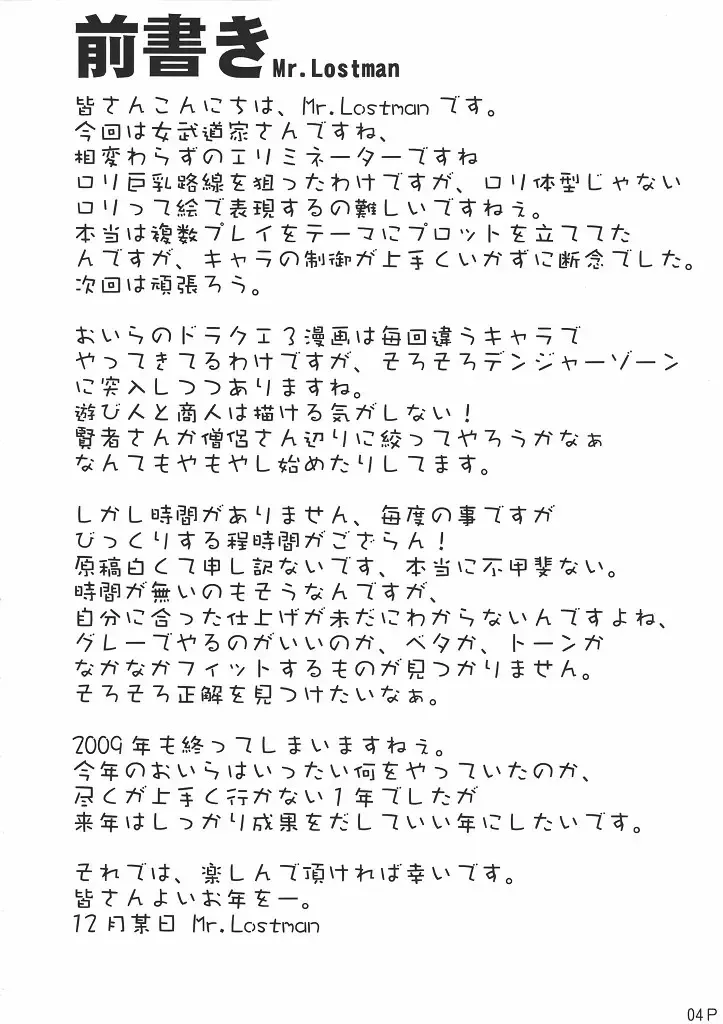 前書き Mr.Lostman
皆さんこんにちは、Mr.Lostmanです。
今回は女武道家さんですね、
相変わらずのエリミネーターですね
ロリ巨乳路線を狙ったわけですが、ロリ体型じゃない
ロリって絵で表現するの難しいですねぇ。
本当は複数プレイをテーマにプロットを立ててた
んですが、キャラの制御が上手くいかずに断念でした。
次回は頑張ろう。
おいらのドラクエ3漫画は毎回違うキャラで
やってきてるわけですが、そろそろデンジャーゾーン
に突入しつつありますね。
遊び人と商人は描ける気がしない!
賢者さんか僧侶さん辺りに絞ってやろうかなぁ
なんてもやもやし始めたりしてます。
しかし時間がありません、毎度の事ですが
びっくりする程時間がござらん!
原稿白くて申し訳ないです、本当に不甲斐ない。
時間が無いのもそうなんですが、
自分に合った仕上げが未だにわからないんですよね、
グレーでやるのがいいのか、ベタか、トーンか
なかなかフィットするものが見つかりません。
そろそろ正解を見つけたいなぁ。
2009年も終ってしまいますねぇ。
今年のおいらはいったい何をやっていたのか、
尽くが上手く行かない1年でしたが
来年はしっかり成果をだしていい年にしたいです。
それでは、楽しんで頂ければ幸いです。
皆さんよいお年をー。
12月某日 Mr.Lostman
04P